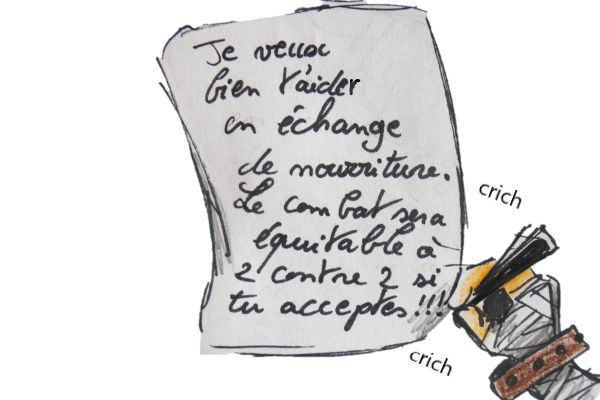 Je veux
bien t'aider
en échange
de nourriture.
Le combat sera
équitable à
2 contre 2 si
tu acceptes !!!
crich
crich